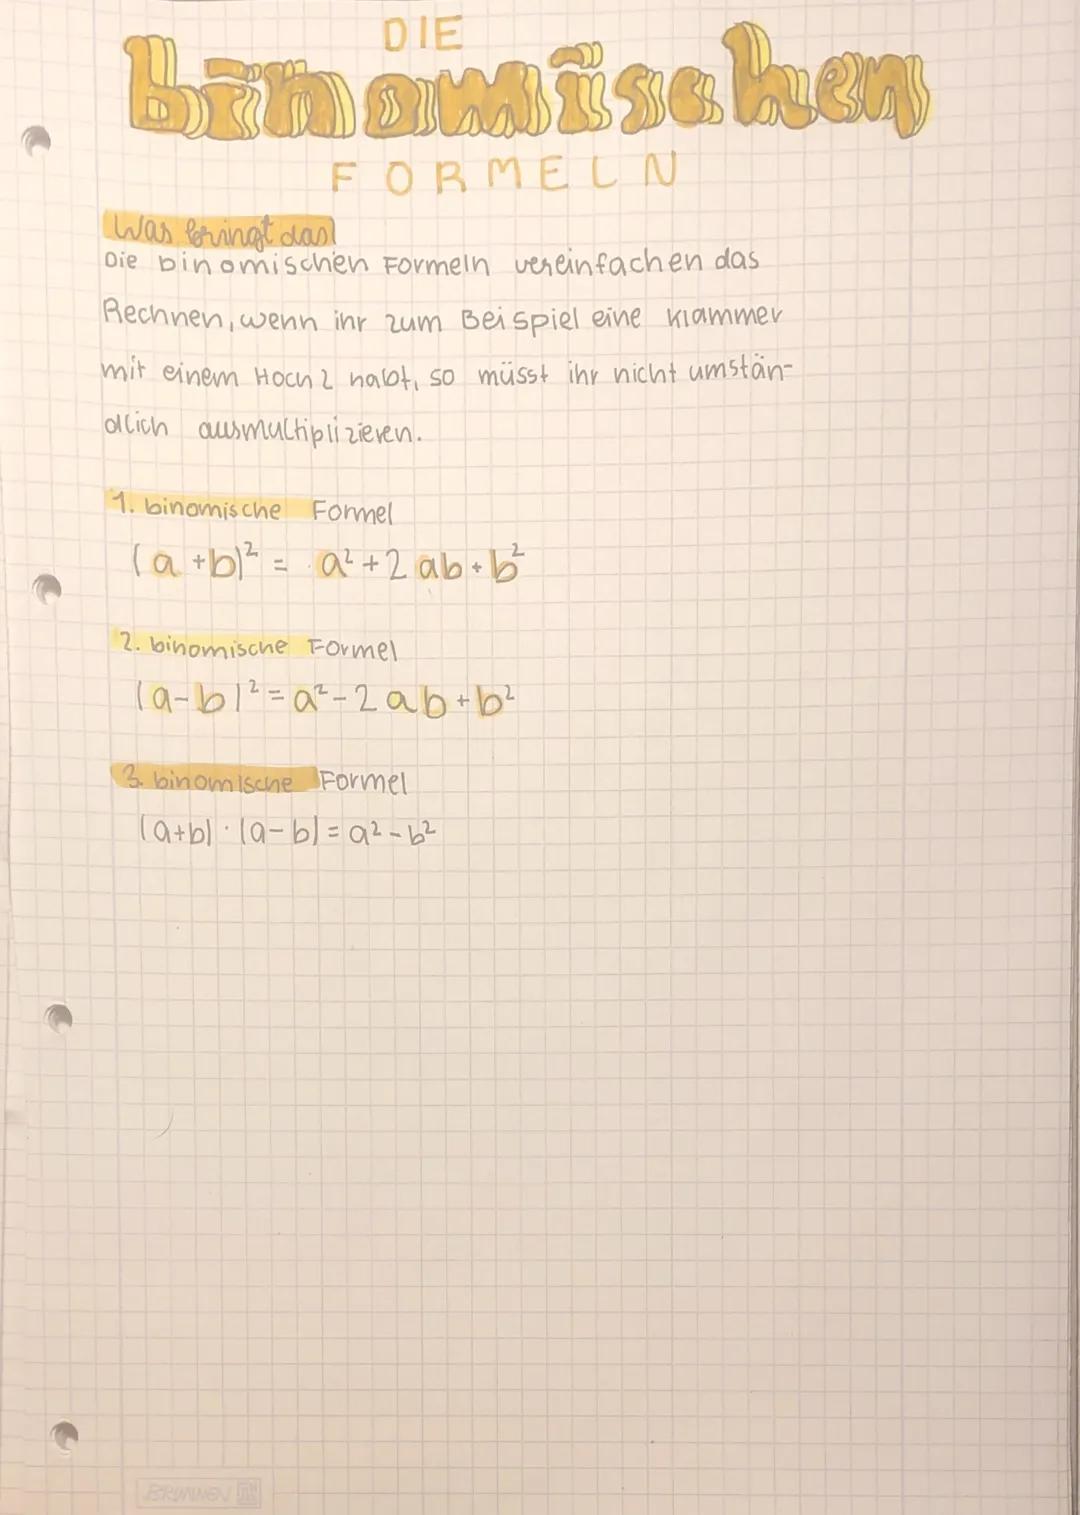 DIE
binomischen
FORMELN
Was bringt das
Die binomischen Formeln vereinfachen das
Rechnen, wenn ihr zum Beispiel eine Klammer
mit einem Hoch 2 habt, so müsst ihr nicht umstän-
dlich ausmultiplizieren.
1. binomische Formel
(a+b)² = a²+2ab+b²
2. binomische Formel
(a-b)² = a²-2ab+b²
3. binomische Formel
(a+b)·(a-b) = a²-b²
BRUNNEN